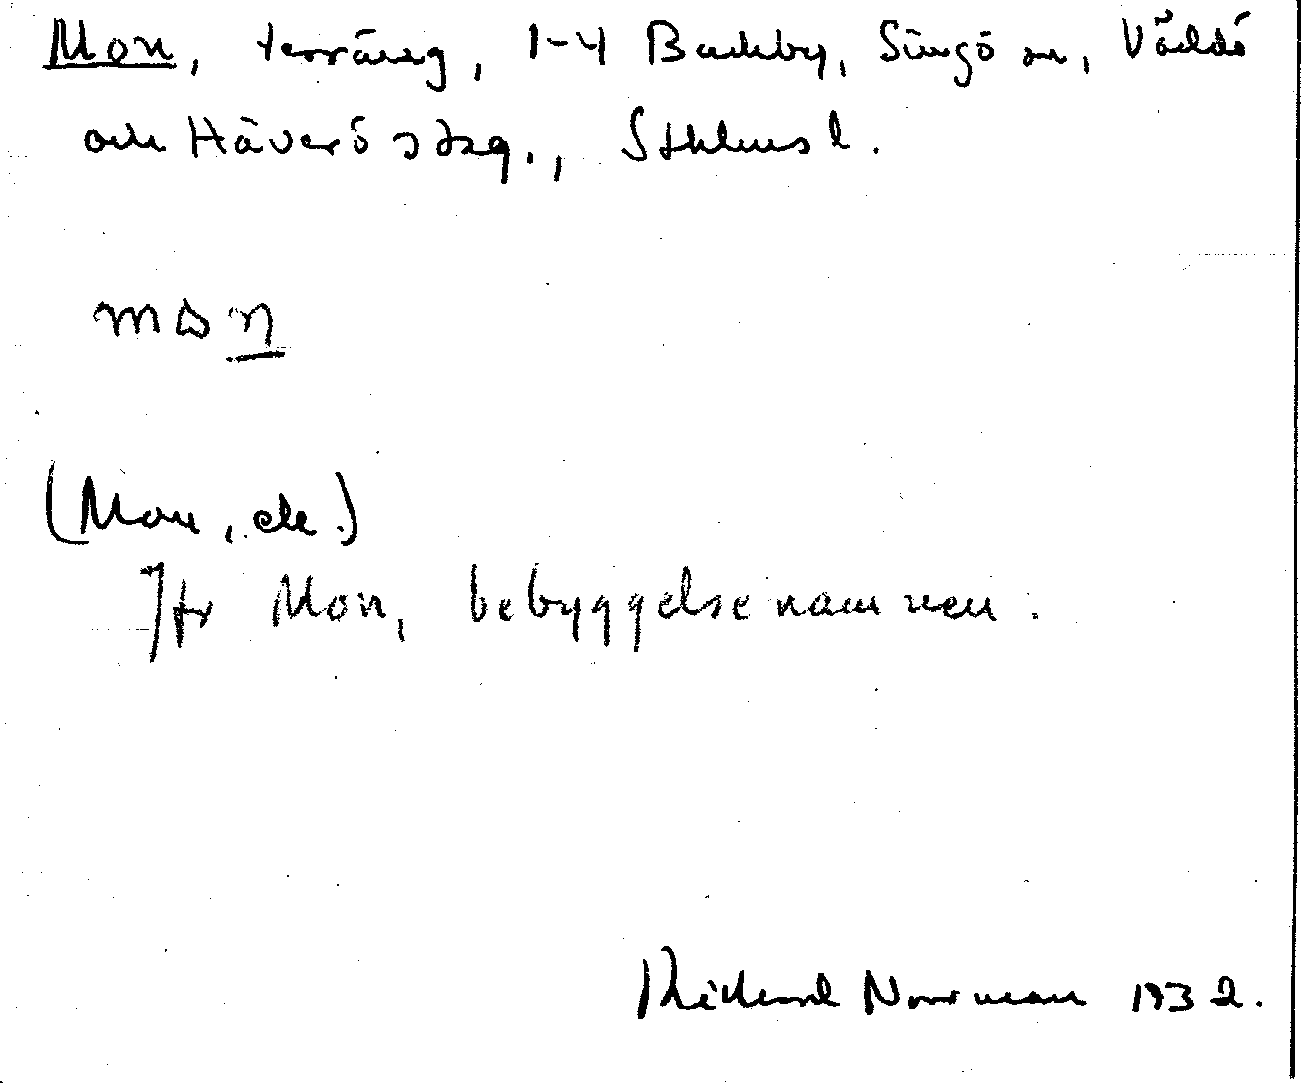 Mon, terräng, 1-4 Backby, Singö sn, Väddö
och Häverö skg., Sthlms l.
mɷn
(Mon, ek.)
Jfr Mon, bebyggelsenamnen.
Rickard Norrman 1932.